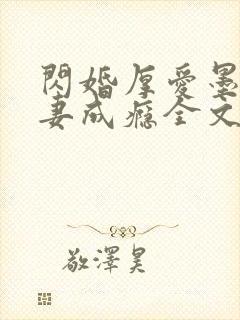 閃婚厚愛墨
妻成癮全文
敬澤昊